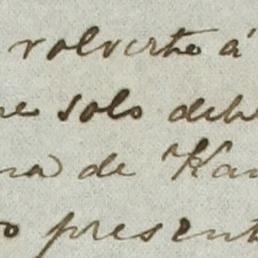 volverte á
solo debe
de Kan
present